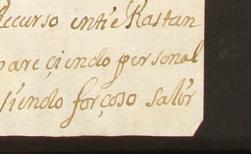 Recurso entre Rastan
pareçiendo personal
siendo forçoso salir